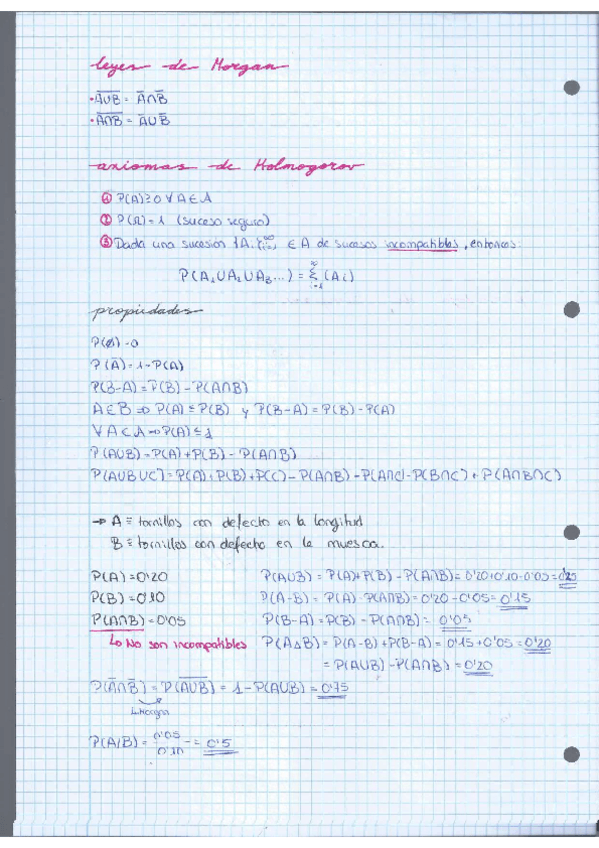 leyes de Morgan
• \overline{A∪B} = A̅∩B̅
• \overline{A∩B} = A̅∪B̅
axiomas de Kolmogorov
① P(A)≥0 ∀A∈A
② P(Ω)=1 (suceso seguro)
③ Dada una sucesión {Aᵢ}ᵢ₌₁^∞ ∈ A de sucesos incompatibles, entonces:
P(A₁∪A₂∪A₃...) = Σᵢ₌₁^∞ (Aᵢ)
propiedades
P(∅)=0
P(A̅)=1-P(A)
P(B-A)=P(B)-P(A∩B)
A∈B ⇒ P(A)≤P(B) y P(B-A)=P(B)-P(A)
∀A⊂A ⇒ P(A)≤1
P(A∪B)=P(A)+P(B)-P(A∩B)
P(A∪B∪C)=P(A)+P(B)+P(C)-P(A∩B)-P(A∩C)-P(B∩C)+P(A∩B∩C)
→ A ≡ tornillos con defecto en la longitud
B ≡ tornillos con defecto en la muesca.
P(A)=0'20 P(A∪B) = P(A)+P(B)-P(A∩B)= 0'20+0'10-0'05=0'25
P(B)=0'10 P(A-B)= P(A)-P(A∩B)=0'20-0'05=0'15
P(A∩B)=0'05 P(B-A)=P(B)-P(A∩B)= 0'05
↳ No son incompatibles P(A△B)= P(A-B)+P(B-A)= 0'15+0'05=0'20
= P(A∪B)-P(A∩B)=0'20
P(A̅∩B̅)= P(\overline{A∪B}) = 1-P(A∪B)=0'75
L.Morgan
P(A/B)= 0'05/0'10 = 0'5